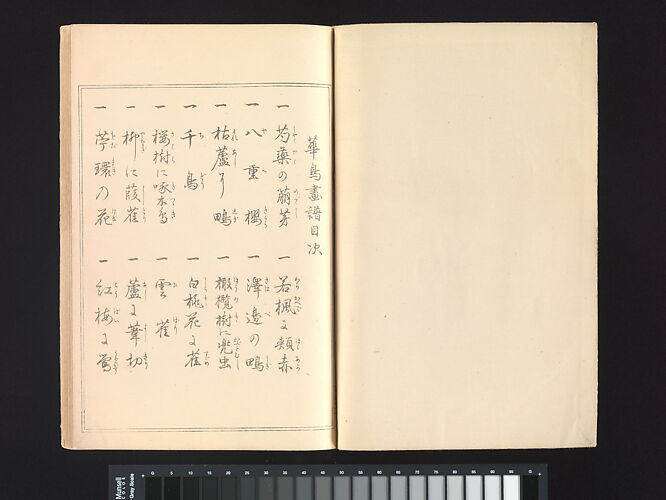 華鳥畫譜目次
一 芍藥の萠芽
一 若楓に頬赤
一 八重櫻
一 澤邉の鴫
一 枯蘆に鴫
一 橄欖樹に兜虫
一 千鳥
一 白桃花に雀
一 桜樹に啄木鳥
一 雲雀
一 柳に葭雀
一 蘆に葦切
一 苧環の花
一 紅梅に鶯
Munsell
COLOR
Gray Scale